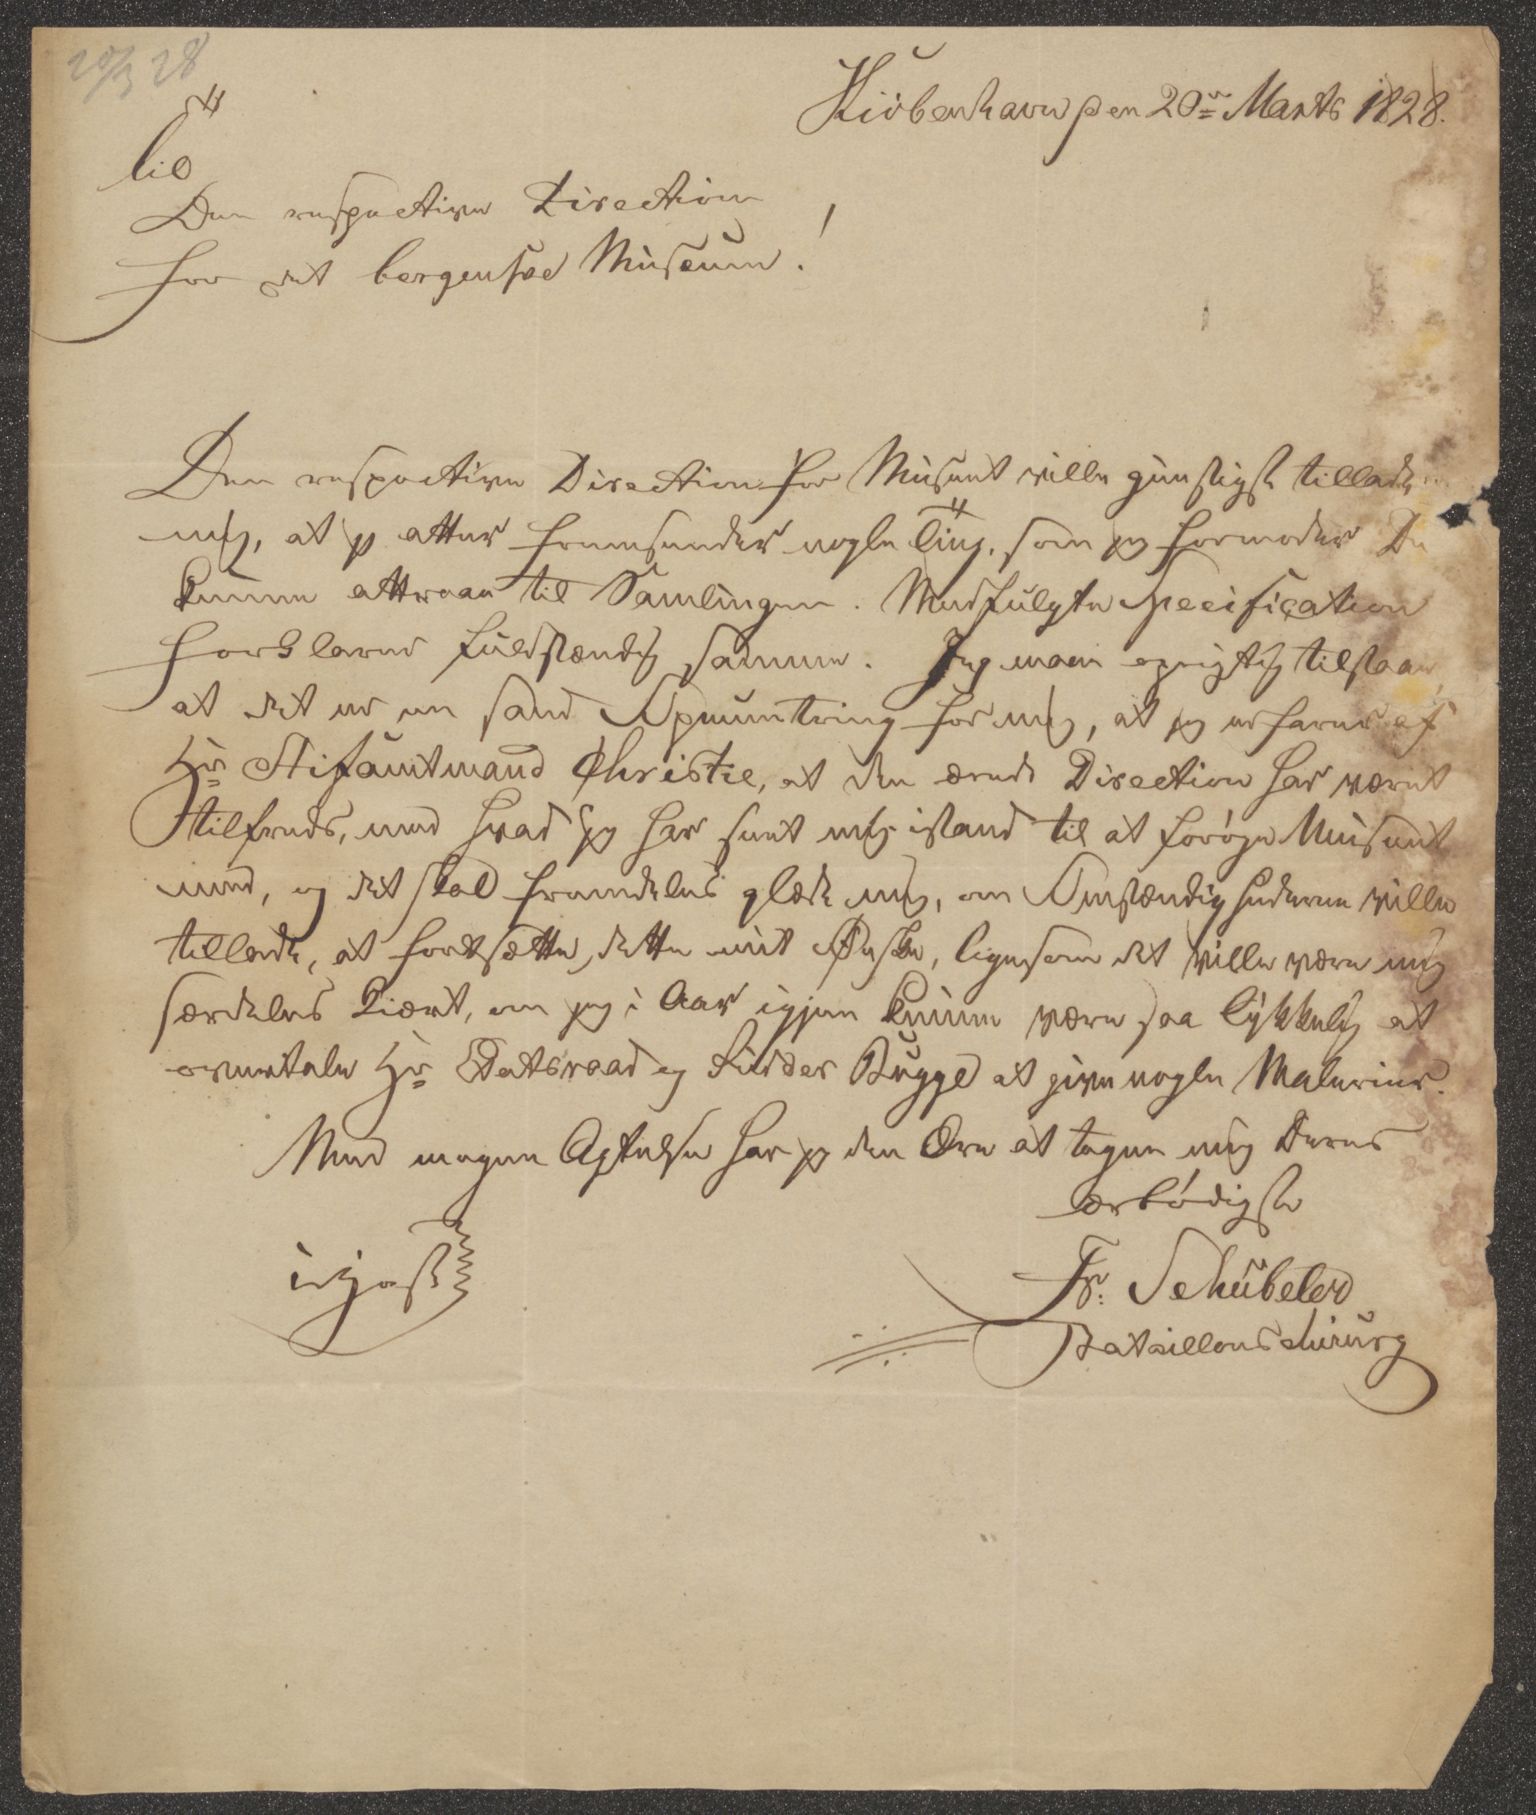 20/3 28
Kiöbenhavn den 20de Marts 1828.
Til
Den respective Direction
for det bergenske Museum!
Den respective Direction for Museet ville gunstigst tillade
mig, at jeg atter fremsender nogle Ting, som jeg formoder De
kunne attraae til Samlingen. Medfulgte Specification
forklarer fuldstændig samme. Jeg maae oprigtig tilstaae,
at det er en sand Opmuntring for mig, at jeg erfarer af
Hr Stiftamtmand Christie, at den ærede Direction har været
tilfreds, med hvad jeg har seet mig istand til at forøge Museet
med, og det skal fremdeles glæde mig, om Omstændighederne ville
tillade, at fortsætte dette mit Ønske, ligesom det ville være mig
særdeles kiært, om jeg i Aar igjen kunne være saa lykkelig at
overtale Hr Etatsraad og Ridder Bugge at give nogle Malerier.
Med megen Agtelse har jeg den Ære at tegne mig Deres
ærbødigste
i Hast
Fr. Schübeler
Bataillonschirurg